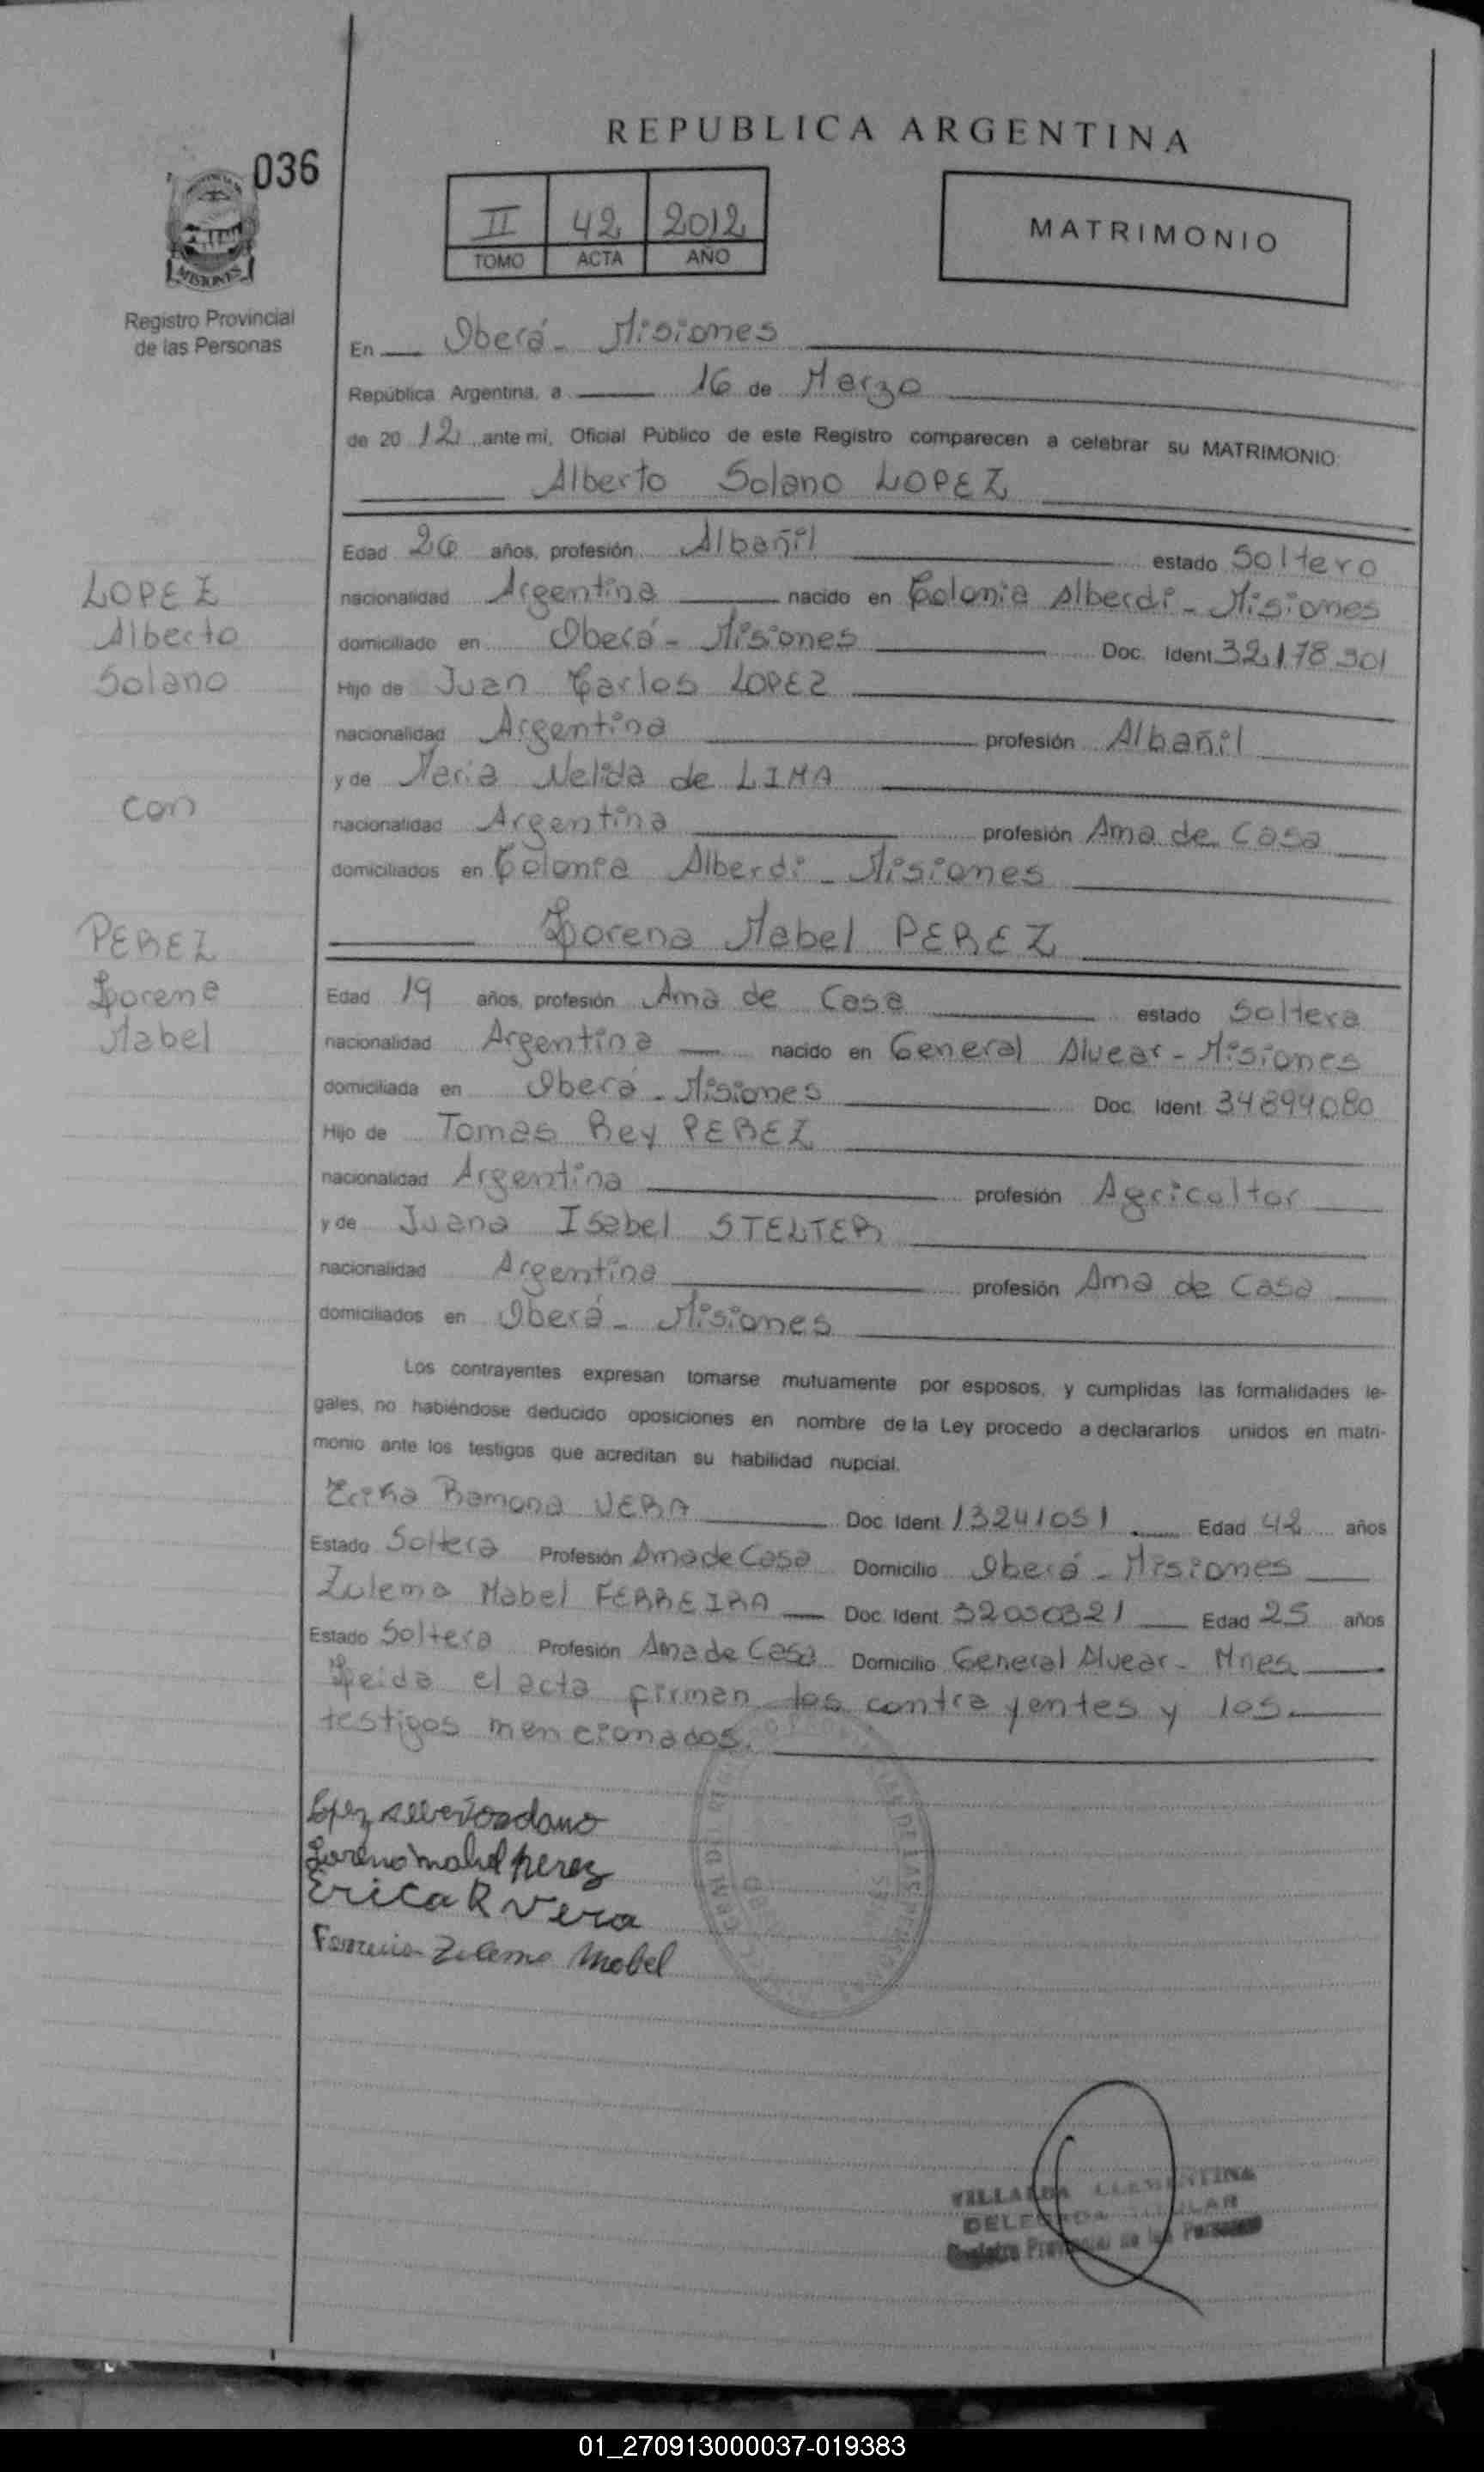 REPUBLICA ARGENTINA
036
II 42 2012
TOMO ACTA AÑO
MATRIMONIO
MISIONES
Registro Provincial
de las Personas
En Oberá - Misiones
República Argentina, a 16 de Marzo
de 2012 ante mi, Oficial Público de este Registro comparecen a celebrar su MATRIMONIO:
Alberto Solano LOPEZ
Edad 26 años, profesión Albañil estado Soltero
nacionalidad Argentina nacido en Colonia Alberdi - Misiones
domiciliado en Oberá - Misiones Doc. Ident. 32.178.901
Hijo de Juan Carlos LOPEZ
nacionalidad Argentina profesión Albañil
y de Maria Nelida de LIMA
nacionalidad Argentina profesión Ama de Casa
domiciliados en Colonia Alberdi - Misiones
LOPEZ
Alberto
Solano
con
PEREZ
Lorena
Mabel
Lorena Mabel PEREZ
Edad 19 años, profesión Ama de Casa estado Soltera
nacionalidad Argentina nacido en General Alvear - Misiones
domiciliada en Oberá - Misiones Doc. Ident. 34894080
Hijo de Tomas Rey PEREZ
nacionalidad Argentina profesión Agricultor
y de Juana Isabel STELTER
nacionalidad Argentina profesión Ama de Casa
domiciliados en Oberá - Misiones
Los contrayentes expresan tomarse mutuamente por esposos, y cumplidas las formalidades le-
gales, no habiéndose deducido oposiciones en nombre de la Ley procedo a declararlos unidos en matri-
monio ante los testigos que acreditan su habilidad nupcial.
Erika Ramona VERA Doc. Ident. 13241051 Edad 42 años
Estado Soltera Profesión Ama de Casa Domicilio Oberá - Misiones
Zulema Mabel FERREIRA Doc. Ident. Edad 25 años
Estado Soltera Profesión Ama de Casa Domicilio General Alvear - Mnes
Leida el acta firman los contrayentes y los
testigos mencionados.
Lopez Alberto Solano
Lorena mabel perez
Erica R Vera
Ferreira Zulema Mabel
VILLALBA CLEMENTINA
DELEGADA TITULAR
Registro Provincial de las Personas
01_270913000037-019383